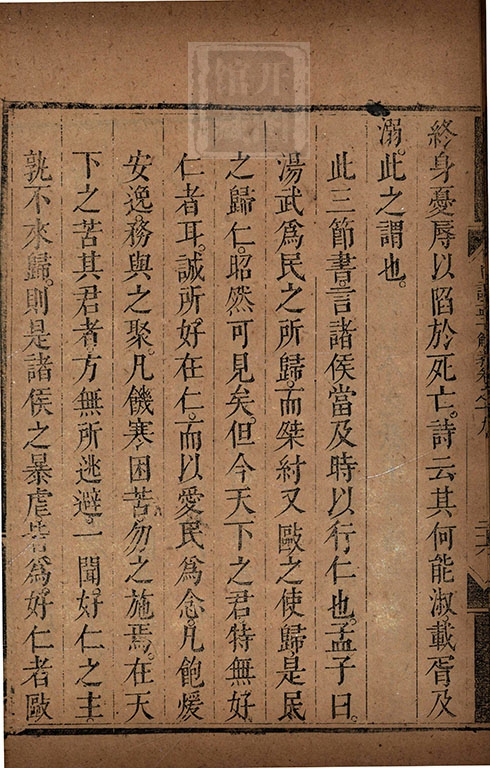 終身憂辱以陷於死亡。詩云其何能淑。載胥及
溺。此之謂也。
此三節書。言諸侯當及時以行仁也。孟子曰。
湯武爲民之所歸。而桀紂又敺之使歸。是民
之歸仁。昭然可見矣。但今天下之君特無好
仁者耳。誠所好在仁。而以愛民爲念。凡飽煖
安逸。務與之聚。凡饑寒困苦。勿之施焉。在天
下之苦其君者。方無所逃避。一聞好仁之主
孰不來歸。則是諸侯之暴虐者。爲好仁者敺